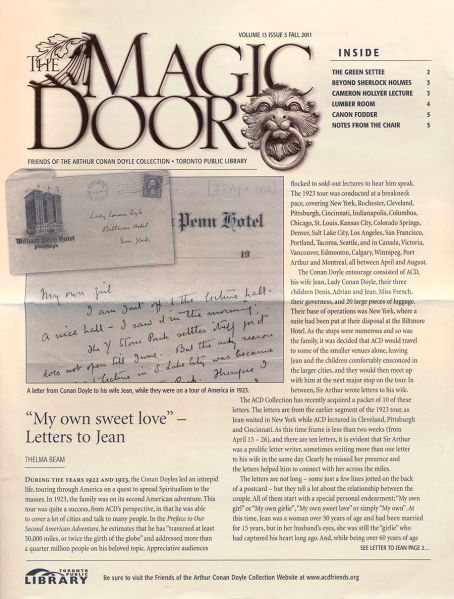 VOLUME 13 ISSUE 3 FALL 2011
THE MAGIC
DOOR
FRIENDS OF THE ARTHUR CONAN DOYLE COLLECTION • TORONTO PUBLIC LIBRARY
INSIDE
THE GREEN SETTEE 2
BEYOND SHERLOCK HOLMES 3
CAMERON HOLLYER LECTURE 3
LUMBER ROOM 4
CANON FODDER 5
NOTES FROM THE CHAIR 5
Lady Conan Doyle
Biltmore Hotel
New York
William Penn Hotel
Pittsburgh
Penn Hotel
19
My own girl
I am just off to the lecture hall.
A nice hall – I saw it in the morning.
does not open till June. But the only reason
A letter from Conan Doyle to his wife Jean, while they were on a tour of America in 1923.
"My own sweet love" –
Letters to Jean
THELMA BEAM
DURING THE YEARS 1922 AND 1923, the Conan Doyles led an intrepid
life, touring through America on a quest to spread Spiritualism to the
masses. In 1923, the family was on its second American adventure. This
tour was quite a success, from ACD's perspective, in that he was able
to cover a lot of cities and talk to many people. In the Preface to Our
Second American Adventure, he estimates that he has "traversed at least
50,000 miles, or twice the girth of the globe" and addressed more than
a quarter million people on his beloved topic. Appreciative audiences
flocked to sold-out lectures to hear him speak.
The 1923 tour was conducted at a breakneck
pace, covering New York, Rochester, Cleveland,
Pittsburgh, Cincinnati, Indianapolis, Columbus,
Chicago, St. Louis, Kansas City, Colorado Springs,
Denver, Salt Lake City, Los Angeles, San Francisco,
Portland, Tacoma, Seattle, and in Canada, Victoria,
Vancouver, Edmonton, Calgary, Winnipeg, Port
Arthur and Montreal, all between April and August.
The Conan Doyle entourage consisted of ACD,
his wife Jean, Lady Conan Doyle, their three
children Denis, Adrian and Jean, Miss French,
their governess, and 20 large pieces of luggage.
Their base of operations was New York, where a
suite had been put at their disposal at the Biltmore
Hotel. As the stops were numerous and so was
the family, it was decided that ACD would travel
to some of the smaller venues alone, leaving
Jean and the children comfortably ensconced in
the larger cities, and they would then meet up
with him at the next major stop on the tour. In
between, Sir Arthur wrote letters to his wife.
The ACD Collection has recently acquired a packet of 10 of these
letters. The letters are from the earlier segment of the 1923 tour, as
Jean waited in New York while ACD lectured in Cleveland, Pittsburgh
and Cincinnati. As this time frame is less than two weeks (from
April 15 – 26), and there are ten letters, it is evident that Sir Arthur
was a prolific letter writer, sometimes writing more than one letter
to his wife in the same day. Clearly he missed her presence and
the letters helped him to connect with her across the miles.
The letters are not long – some just a few lines jotted on the back
of a postcard – but they tell a lot about the relationship between the
couple. All of them start with a special personal endearment; "My own
girl" or "My own girlie", "My own sweet love" or simply "My own". At
this time, Jean was a woman over 50 years of age and had been married
for 15 years, but in her husband's eyes, she was still the "girlie" who
had captured his heart long ago. And, while being over 60 years of age
SEE LETTER TO JEAN PAGE 2…
TORONTO
PUBLIC
LIBRARY
Be sure to visit the Friends of the Arthur Conan Doyle Collection Website at www.acdfriends.org